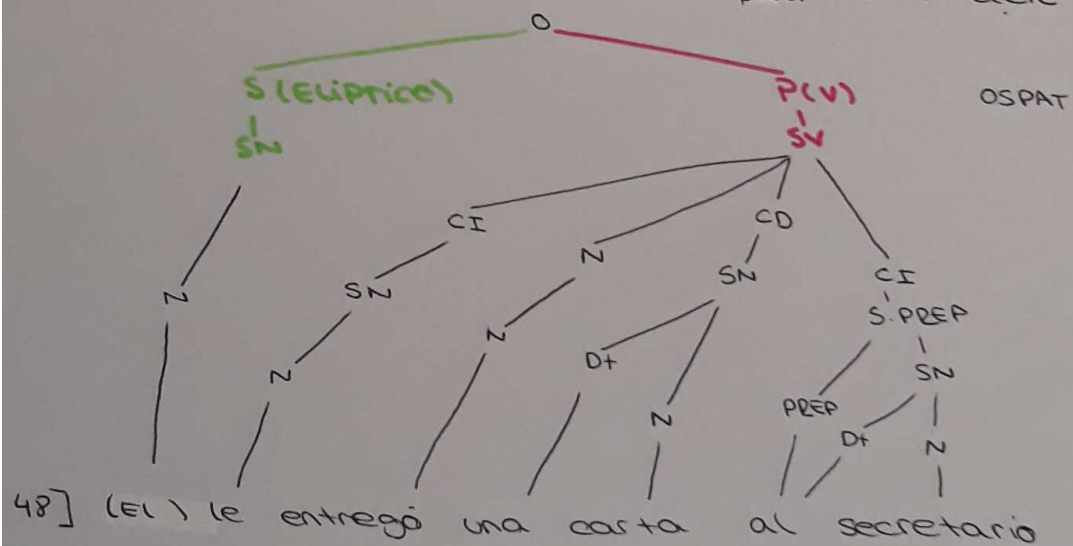 O
S (Elíptico) P(V) OSPAT
SN SV
CI CD
N SN CI
SN S.PREP
N N Dt SN
N PREP
N Dt N
48] (El) le entregó una carta al secretario